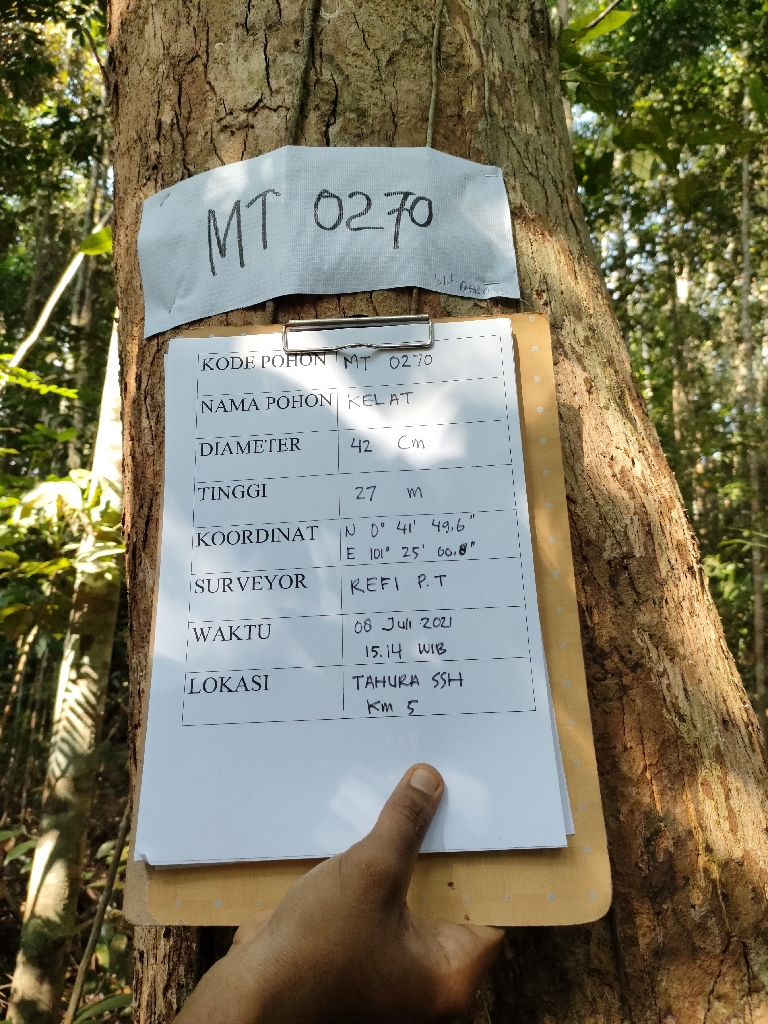 MT 0270
KODE POHON MT 0270
NAMA POHON KELAT
DIAMETER 42 Cm
TINGGI 27 m
KOORDINAT N 0° 41' 49.6"
E 101° 25' 00.8"
SURVEYOR REFI P.T
WAKTU 08 Juli 2021
15.14 WIB
LOKASI TAHURA SSH
Km 5